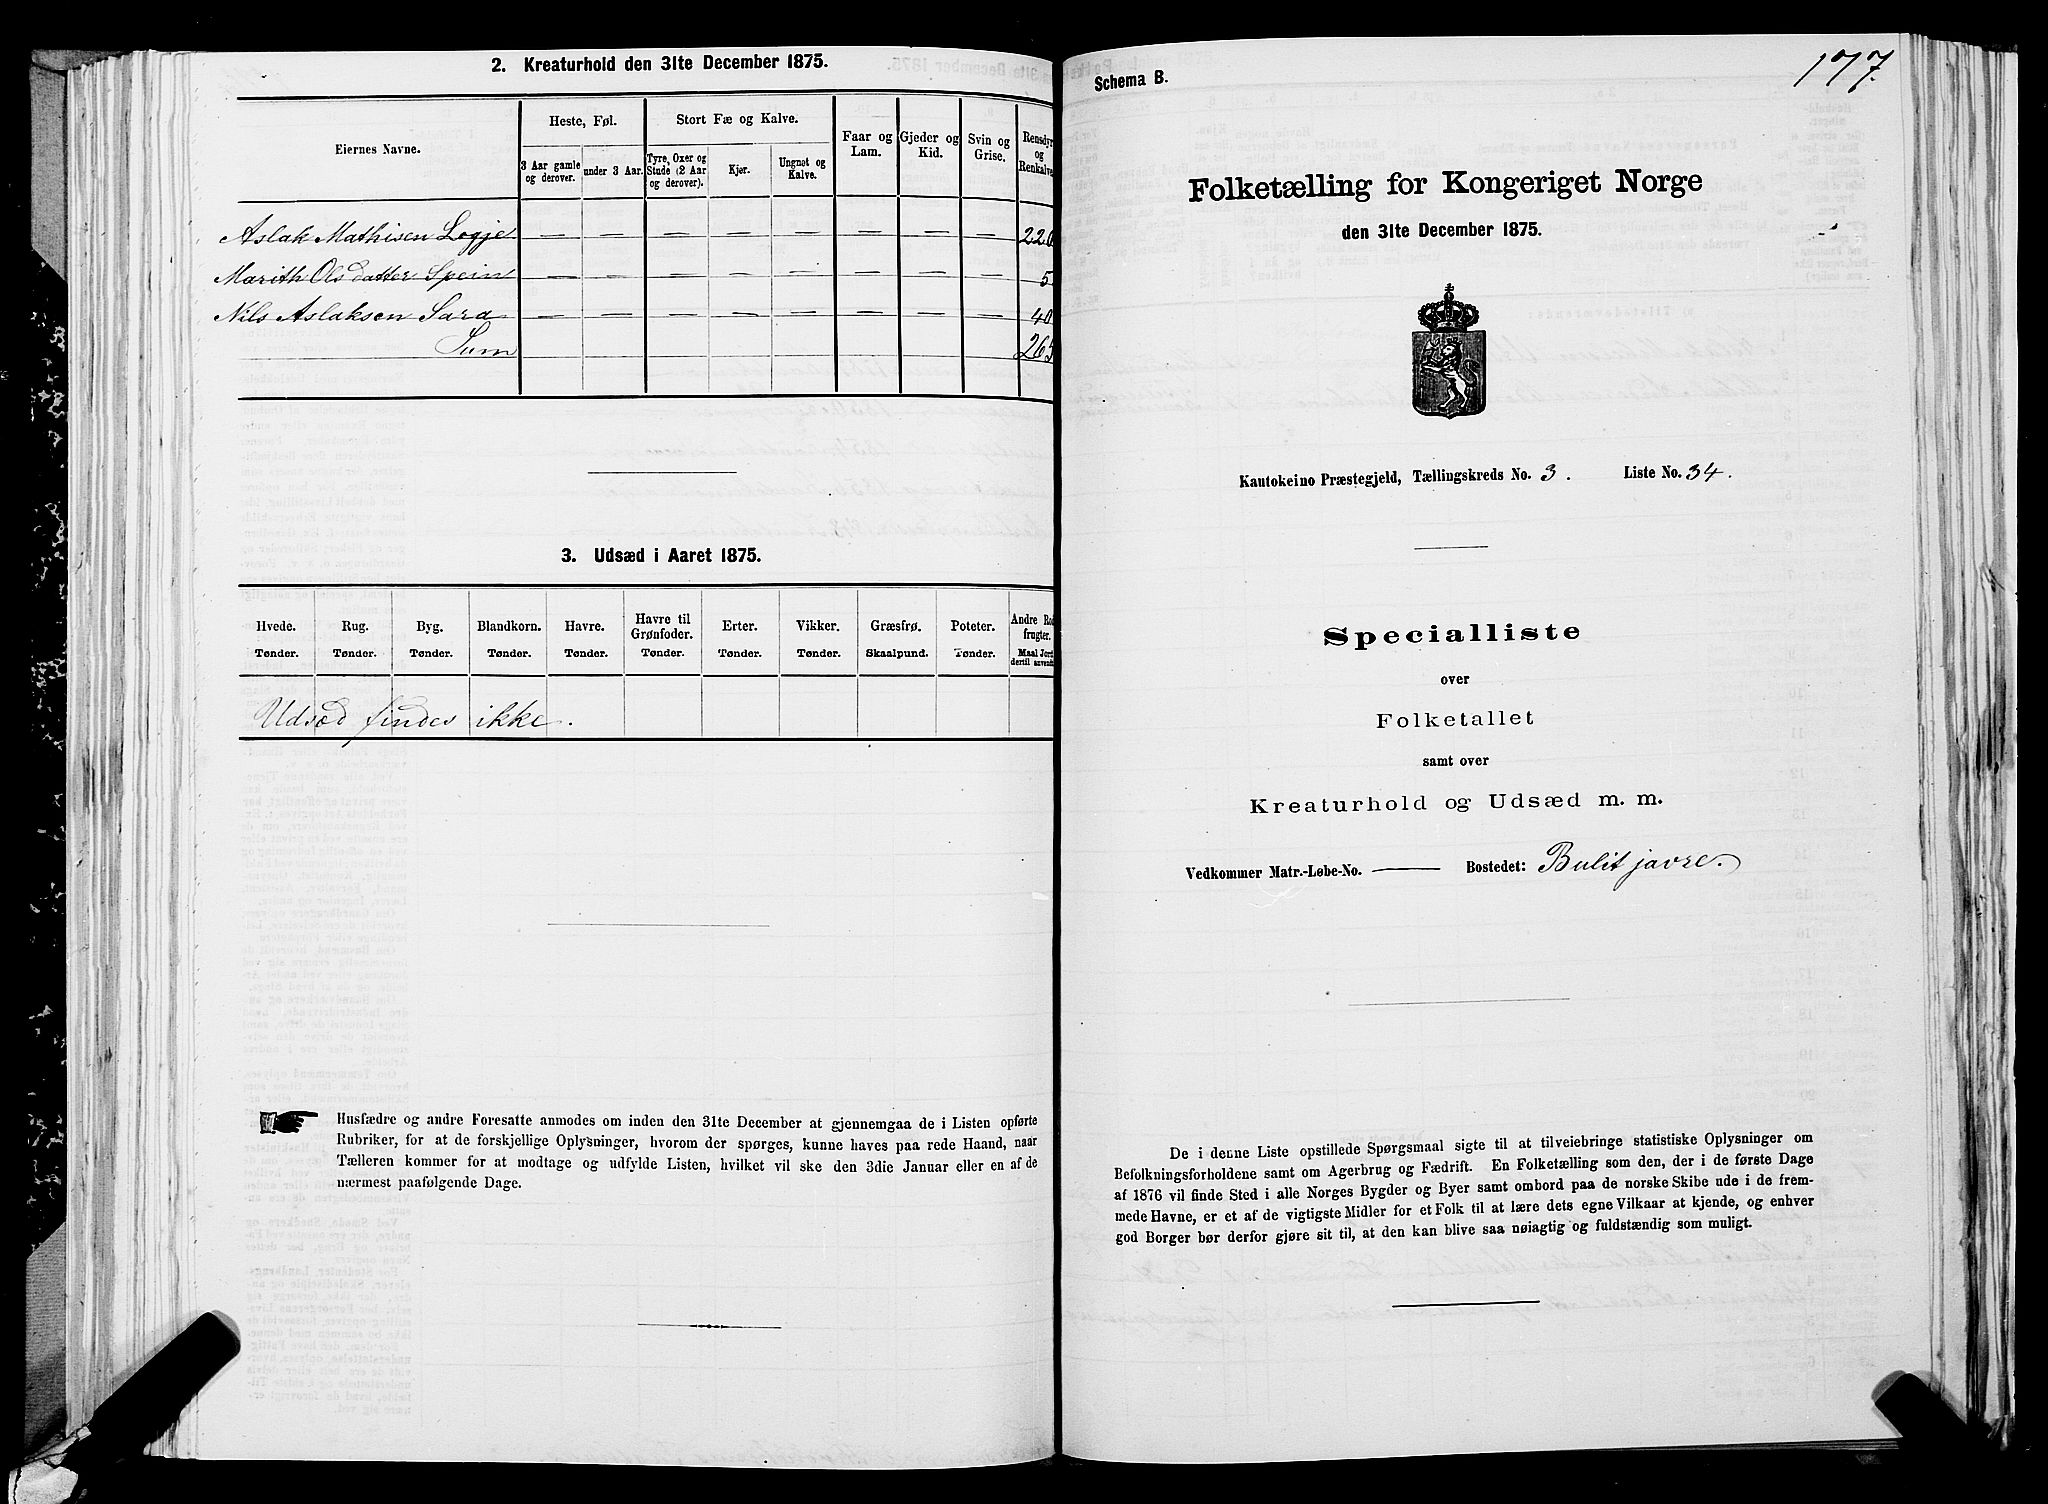 2. Kreaturhold den 31te December 1875.
Eiernes Navne.
Heste, Føl.
Stort Fæ og Kalve.
Faar og Lam.
Gjeder og Kid.
Svin og Grise.
Rensdyr og Renkalve
3 Aar gamle og derover.
under 3 Aar.
Tyre, Oxer og Stude (2 Aar og derover).
Kjør.
Ungnøt og Kalve.
Aslak Mathisen Logje — — — — — — — — 220
Marith Olsdatter Spein — — — — — — — — 5
Nils Aslaksen Sara — — — — — — — — 40
Sum 265
3. Udsæd i Aaret 1875.
Hvede. Rug. Byg. Blandkorn. Havre. Havre til Grønfoder. Erter. Vikker. Græsfrø. Poteter. Andre Rodfrugter.
Tønder. Tønder. Tønder. Tønder. Tønder. Tønder. Tønder. Tønder. Skaalpund. Tønder. Maal Jord dertil anvendt
Udsæd findes ikke.
Husfædre og andre Foresatte anmodes om inden den 31te December at gjennemgaa de i Listen opførte
Rubriker, for at de forskjellige Oplysninger, hvorom der spørges, kunne haves paa rede Haand, naar
Tælleren kommer for at modtage og udfylde Listen, hvilket vil ske den 3die Januar eller en af de
nærmest paafølgende Dage.
177.
Schema B.
Folketælling for Kongeriget Norge
den 31te December 1875.
Kautokeino Præstegjeld, Tællingskreds No. 3. Liste No. 34.
Specialliste
over
Folketallet
samt over
Kreaturhold og Udsæd m. m.
Vedkommer Matr.-Løbe-No. — Bostedet: Bulitjavre.
De i denne Liste opstillede Spørgsmaal sigte til at tilveiebringe statistiske Oplysninger om
Befolkningsforholdene samt om Agerbrug og Fædrift. En Folketælling som den, der i de første Dage
af 1876 vil finde Sted i alle Norges Bygder og Byer samt ombord paa de norske Skibe ude i de frem-
mede Havne, er et af de vigtigste Midler for et Folk til at lære dets egne Vilkaar at kjende, og enhver
god Borger bør derfor gjøre sit til, at den kan blive saa nøiagtig og fuldstændig som muligt.